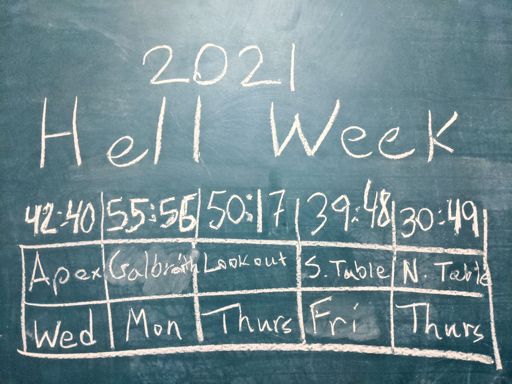 2021
Hell Week
42:40 55:56 50:17 39:48 30:49
Apex Galbraith Lookout S. Table N. Table
Wed Mon Thurs Fri Thurs